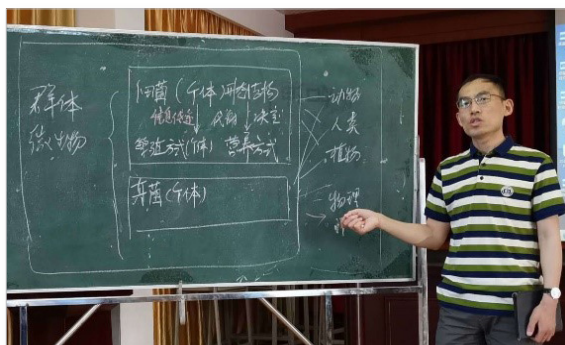 群体
微生物
细菌(个体)形态结构
信息传递 成分 决定
繁殖方式(个体) 营养方式
真菌(个体)
动物
人类
植物
物理